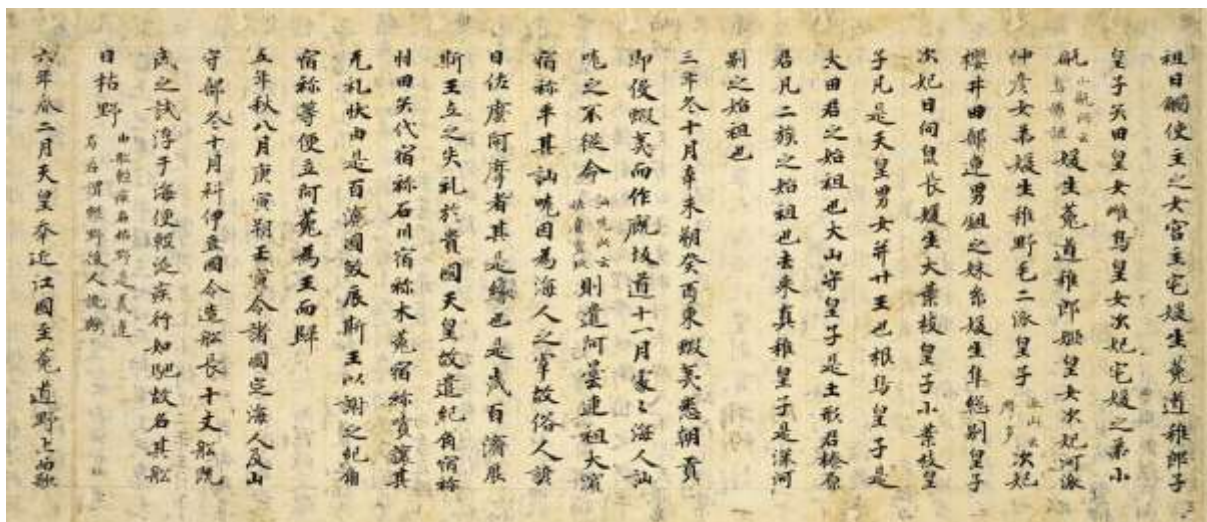 祖日觸使主之女宮主宅媛生菟道稚郎子
皇子矢田皇女雌鳥皇女次妃宅媛之弟小
甂小甂此云烏儺謎媛生菟道稚郎姫皇女次妃河派
仲彦女弟媛生稚野毛二派皇子派此云摩多次妃
櫻井田部連男鉏之妹糸媛生隼総別皇子
次妃日向泉長媛生大葉枝皇子小葉枝皇
子凡是天皇男女并廿王也根鳥皇子是
大田君之始祖也大山守皇子是土形君榛原
君凡二族之始祖也去来真稚皇子是深河
別之始祖也
三年冬十月辛未朔癸酉東蝦夷悉朝貢
即役蝦夷而作厩坂道十一月處々海人訕
哤之不従命訕哤此云佐麼賣玖則遣阿曇連祖大濱
宿祢平其訕哤因為海人之宰故俗人諺
曰佐麼阿摩者其是縁也是歳百濟辰
斯王立之失礼於貴國天皇故遣紀角宿祢
羽田矢代宿祢石川宿祢木菟宿祢嘖譲其
无礼状由是百濟國煞辰斯王以謝之紀角
宿祢等便立阿花為王而歸
五年秋八月庚寅朔壬寅令諸國定海人及山
守部冬十月科伊豆國令造舩長十丈舩既
成之試浮于海便軽泛疾行如馳故名其舩
曰枯野由舩軽疾名枯野是義違焉若謂軽野後人訛歟
六年春二月天皇幸近江國至菟道野上而歌